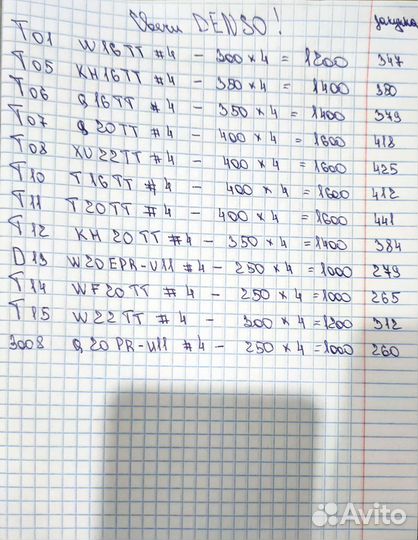 Свечи DENSO! закупка
T01 W16TT #4 - 300×4 = 1200 347
T05 KH16TT #4 - 350×4 = 1400 350
T06 Q16TT #4 - 350×4 = 1400 379
T07 Q20TT #4 - 400×4 = 1600 418
T08 XU22TT #4 - 400×4 = 1600 425
T10 T16TT #4 - 400×4 = 1600 412
T11 T20TT #4 - 400×4 = 1600 441
T12 KH20TT #4 - 350×4 = 1400 384
D13 W20EPR-U11 #4 - 250×4 = 1000 279
T14 WF20TT #4 - 250×4 = 1000 265
T15 W22TT #4 - 300×4 = 1200 312
3008 Q20PR-U11 #4 - 250×4 = 1000 260
Avito